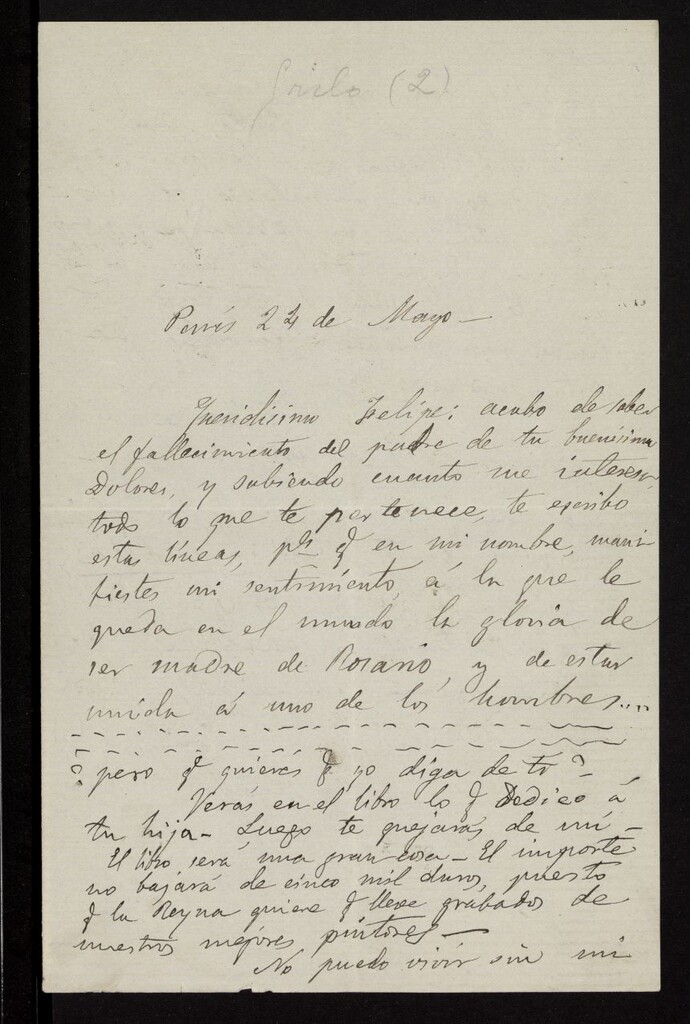 Grilo (2)
París 24 de Mayo—
Queridisimo Felipe: acabo de saber
el fallecimiento del padre de tu buenísima
Dolores, y sabiendo cuanto me interesa,
todo lo que te pertenece, te escribo
estas líneas, pª q en mi nombre, mani
fiestes mi sentimiento, á la que le
queda en el mundo la gloria de
ser madre de Rosario, y de estar
unida á uno de los hombres....
? pero q quieres q yo diga de ti?—
Verás en el libro lo q Dedico á
tu hija— Luego te quejarás de mí—
El libro será una gran cosa— El importe
no bajará de cinco mil duros, puesto
q la Reyna quiere q lleve grabados de
nuestros mejores pintores—
No puedo vivir sin mi